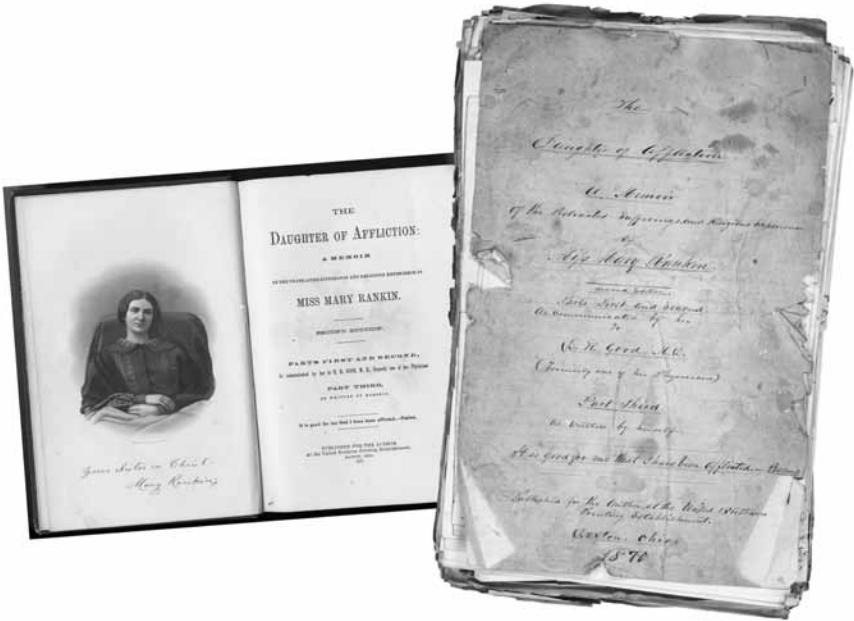 Yours Sister in Christ
Mary Rankin
THE
DAUGHTER OF AFFLICTION:
A MEMOIR
OF THE PROTRACTED SUFFERINGS AND RELIGIOUS EXPERIENCE OF
MISS MARY RANKIN.
SECOND EDITION.
PARTS FIRST AND SECOND,
As communicated by her to D. H. GOOD, M. D., formerly one of her Physicians
PART THIRD,
AS WRITTEN BY HERSELF.
It is good for me that I have been afflicted.—
PUBLISHED FOR THE AUTHOR
At the United Brethren Printing Establishment,
DAYTON, OHIO.
1871.
The
Daughter of Affliction
A Memoir
of the Protracted Sufferings and Religious Experience
of
Miss Mary Rankin
Second Edition
Parts First and Second
As Communicated by her
To
D. H. Good, M.D.
(Formerly one of her Physicians)
Part Third
As written by herself
It is good for me that I have been Afflicted
Published for the Author at the United Brethren
Printing Establishment.
Dayton, Ohio
1870